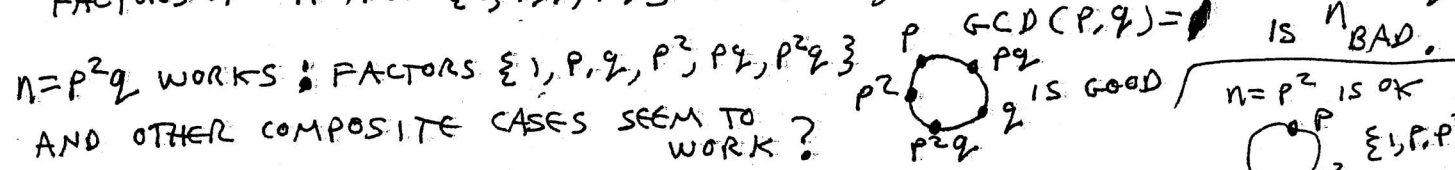 GCD(P,q)=1 IS n BAD.
n=p²q WORKS: FACTORS {1, P, q, p², pq, p²q}
P
pq
p²
q
p²q
IS GOOD
n=p² IS OK
AND OTHER COMPOSITE CASES SEEM TO
WORK?
P
{1,P,P²